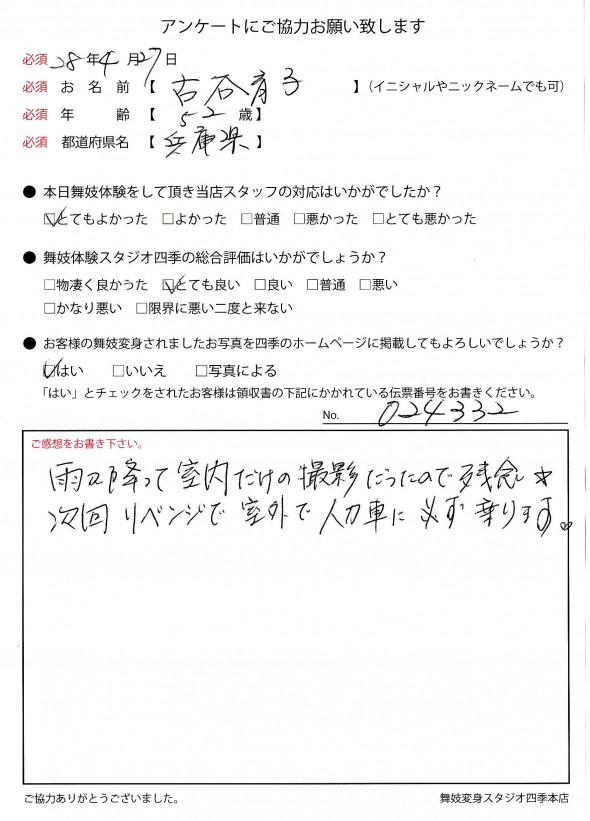 アンケートにご協力お願い致します
必須 28年4月27日
必須 お名前【 古谷育子 】(イニシャルやニックネームでも可)
必須 年齢【 52歳】
必須 都道府県名【 兵庫県 】
● 本日舞妓体験をして頂き当店スタッフの対応はいかがでしたか？
☑とてもよかった □よかった □普通 □悪かった □とても悪かった
● 舞妓体験スタジオ四季の総合評価はいかがでしょうか？
□物凄く良かった ☑とても良い □良い □普通 □悪い
□かなり悪い □限界に悪い二度と来ない
● お客様の舞妓変身されましたお写真を四季のホームページに掲載してもよろしいでしょうか？
☑はい □いいえ □写真による
「はい」とチェックをされたお客様は領収書の下記にかかれている伝票番号をお書きください。
No. 024332
ご感想をお書き下さい。
雨が降って室内だけの撮影だったので残念☆
次回リベンジで室外で人力車に必ず乗ります。♡
ご協力ありがとうございました。 舞妓変身スタジオ四季本店